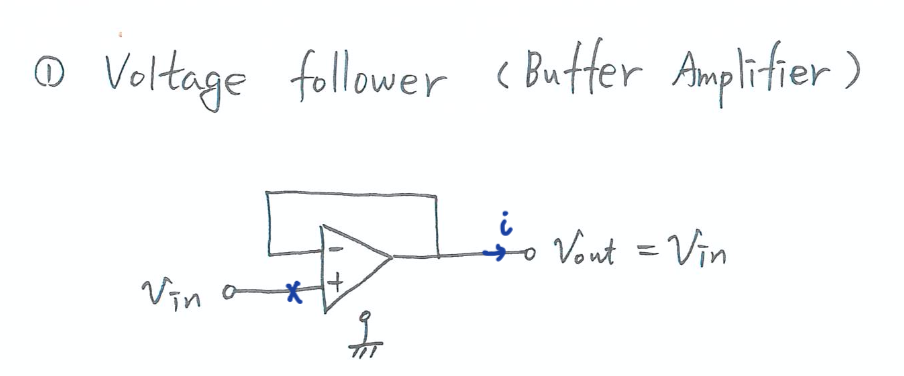 ① Voltage follower (Buffer Amplifier)
i
Vout = Vin
-
+
Vin
x